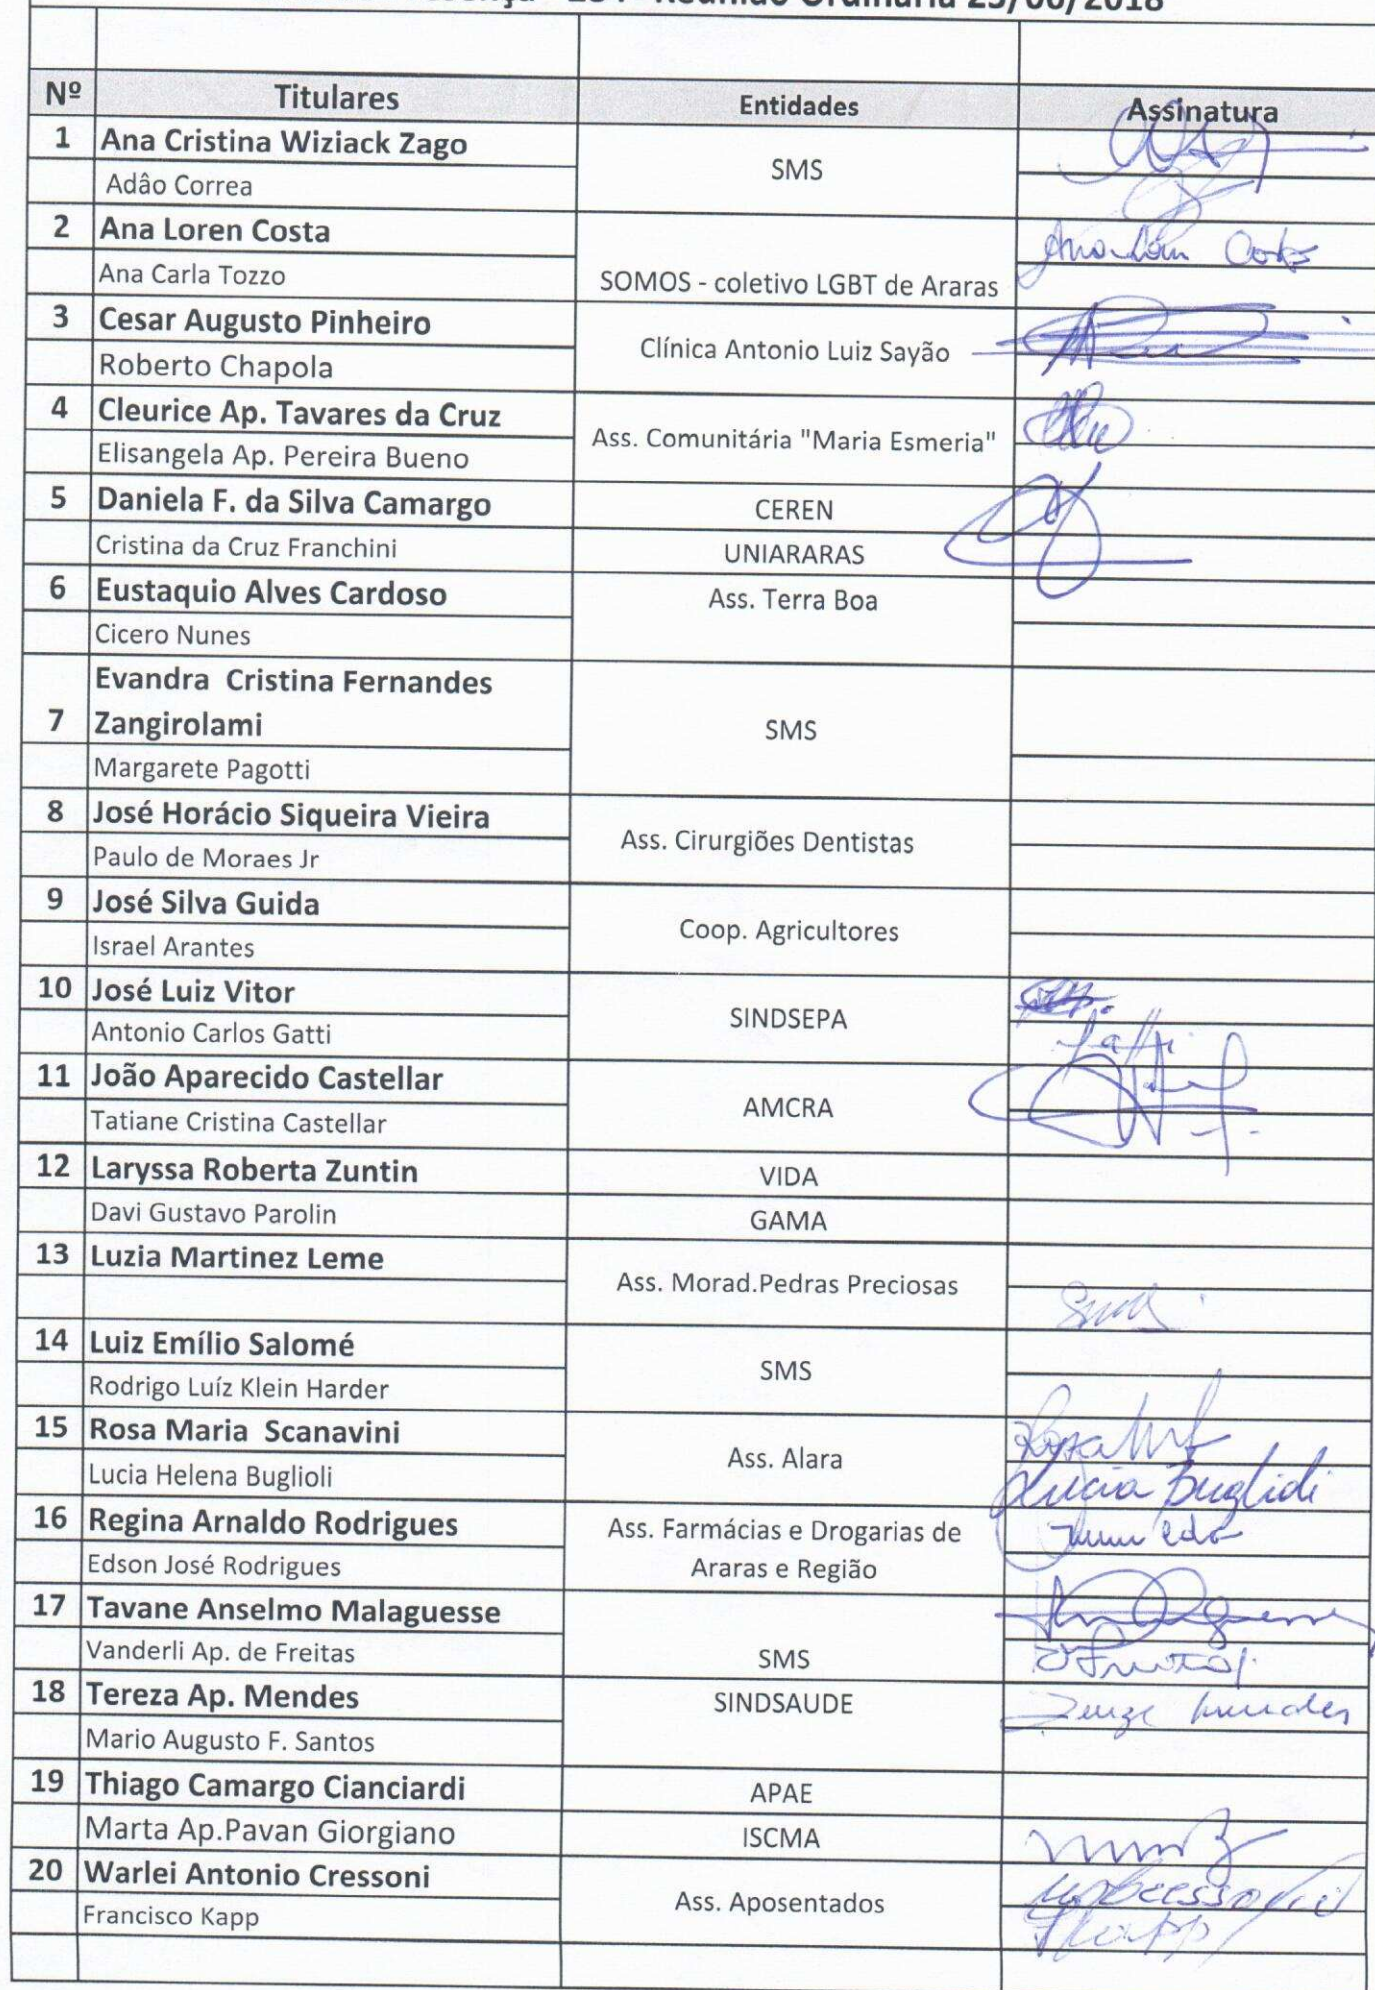 Reunião Ordinária 25/06/2018
Nº Titulares Entidades Assinatura
1 Ana Cristina Wiziack Zago
SMS
Adâo Correa
2 Ana Loren Costa
Ana Loren Costa
Ana Carla Tozzo
SOMOS - coletivo LGBT de Araras
3 Cesar Augusto Pinheiro
Clínica Antonio Luiz Sayão
Roberto Chapola
4 Cleurice Ap. Tavares da Cruz
Ass. Comunitária "Maria Esmeria"
Elisangela Ap. Pereira Bueno
5 Daniela F. da Silva Camargo CEREN
Cristina da Cruz Franchini UNIARARAS
6 Eustaquio Alves Cardoso Ass. Terra Boa
Cicero Nunes
Evandra Cristina Fernandes
7 Zangirolami SMS
Margarete Pagotti
8 José Horácio Siqueira Vieira
Ass. Cirurgiões Dentistas
Paulo de Moraes Jr
9 José Silva Guida
Coop. Agricultores
Israel Arantes
10 José Luiz Vitor
SINDSEPA
Antonio Carlos Gatti Gatti
11 João Aparecido Castellar
AMCRA
Tatiane Cristina Castellar
12 Laryssa Roberta Zuntin VIDA
Davi Gustavo Parolin GAMA
13 Luzia Martinez Leme
Ass. Morad.Pedras Preciosas
14 Luiz Emílio Salomé
SMS
Rodrigo Luíz Klein Harder
15 Rosa Maria Scanavini
Ass. Alara
Lucia Helena Buglioli Lucia Buglioli
16 Regina Arnaldo Rodrigues Ass. Farmácias e Drogarias de
Edson José Rodrigues Araras e Região
17 Tavane Anselmo Malaguesse
Vanderli Ap. de Freitas SMS
18 Tereza Ap. Mendes SINDSAUDE Mendes
Mario Augusto F. Santos
19 Thiago Camargo Cianciardi APAE
Marta Ap.Pavan Giorgiano ISCMA
20 Warlei Antonio Cressoni
Ass. Aposentados
Francisco Kapp FKapp